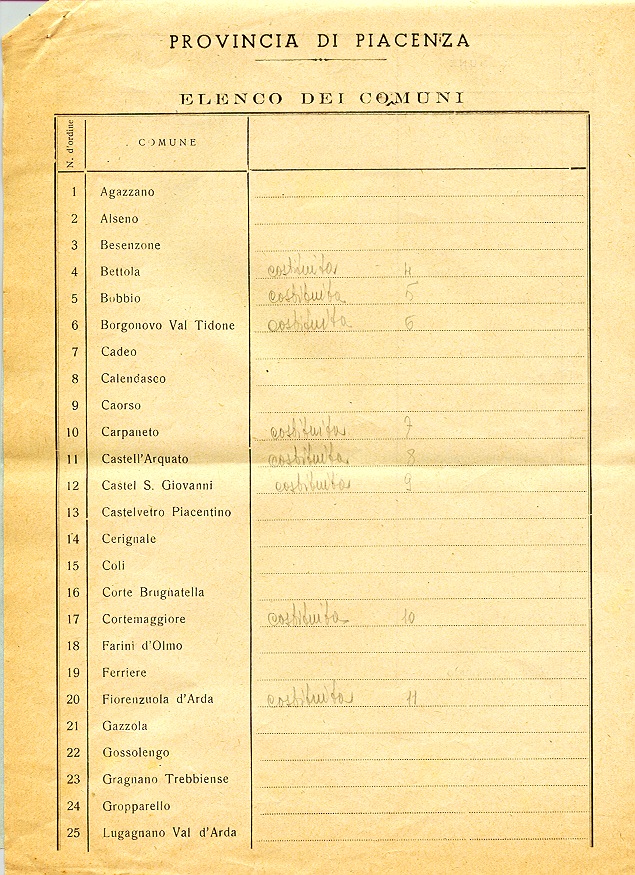 PROVINCIA DI PIACENZA
ELENCO DEI COMUNI
N. d'ordine COMUNE
1 Agazzano
2 Alseno
3 Besenzone
4 Bettola costituita 4
5 Bobbio costituita 5
6 Borgonovo Val Tidone costituita 6
7 Cadeo
8 Calendasco
9 Caorso
10 Carpaneto costituita 7
11 Castell'Arquato costituita 8
12 Castel S. Giovanni costituita 9
13 Castelvetro Piacentino
14 Cerignale
15 Coli
16 Corte Brugnatella
17 Cortemaggiore costituita 10
18 Farini d'Olmo
19 Ferriere
20 Fiorenzuola d'Arda costituita 11
21 Gazzola
22 Gossolengo
23 Gragnano Trebbiense
24 Gropparello
25 Lugagnano Val d'Arda